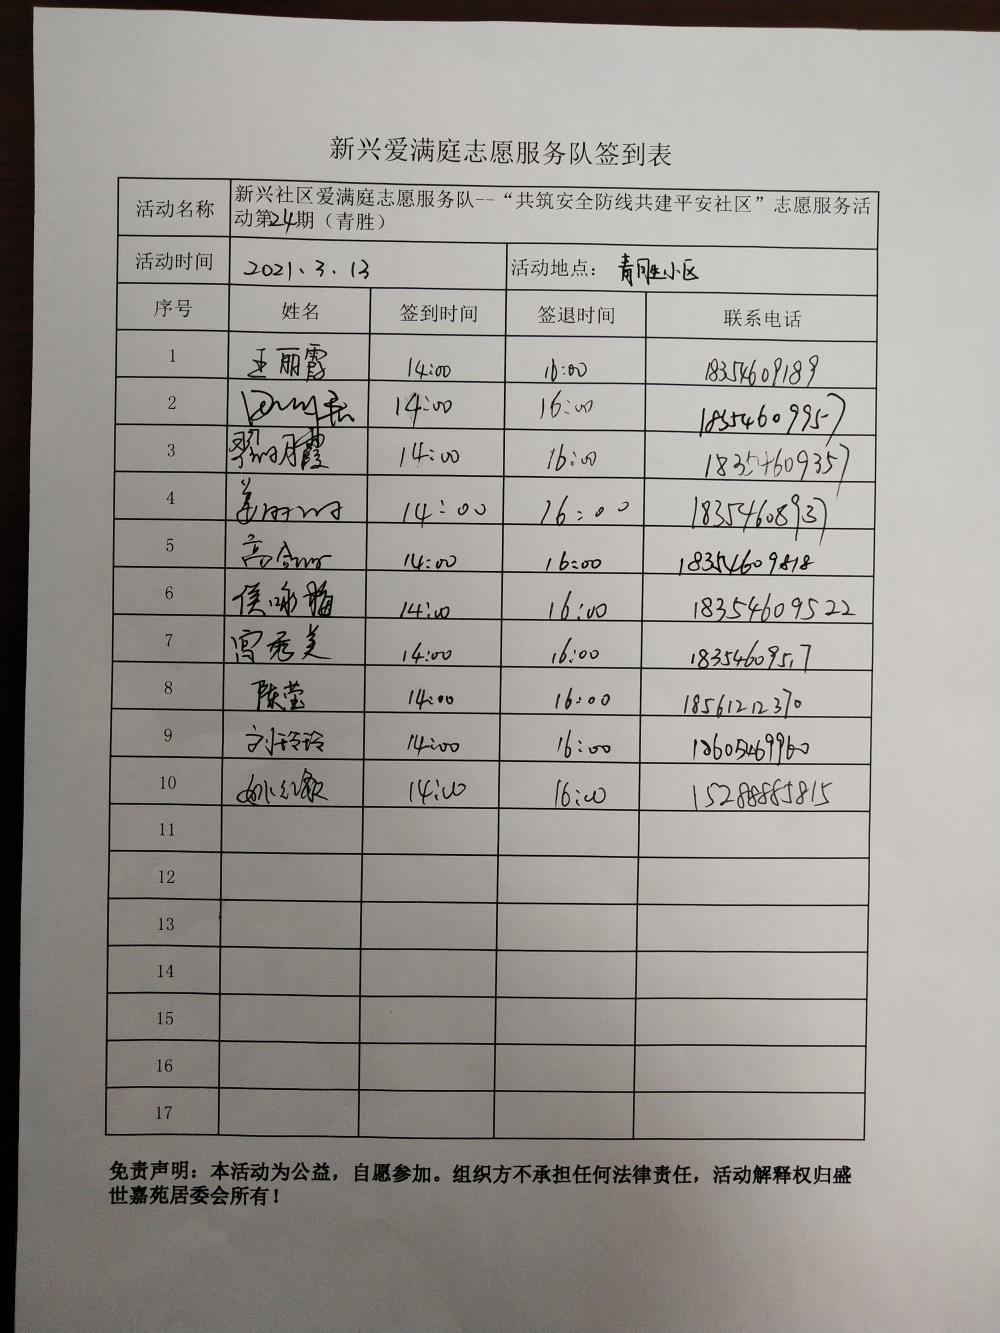 新兴爱满庭志愿服务队签到表
活动名称 新兴社区爱满庭志愿服务队--“共筑安全防线共建平安社区”志愿服务活
动第24期（青胜）
活动时间 2021.3.13 活动地点： 青胜小区
序号 姓名 签到时间 签退时间 联系电话
1 王丽霞 14:00 16:00 18354609189
2 14:00 16:00 18354609957
3 霞 14:00 16:00 18354609357
4 姜 14:00 16:00 18354608937
5 高 14:00 16:00 18354609818
6 侯咏梅 14:00 16:00 18354609522
7 宫秀美 14:00 16:00
8 陈莹 14:00 16:00 18561212370
9 刘玲玲 14:00 16:00 18605469960
10 姚红敏 14:00 16:00 15288885815
11
12
13
14
15
16
17
免责声明：本活动为公益，自愿参加。组织方不承担任何法律责任，活动解释权归盛
世嘉苑居委会所有！